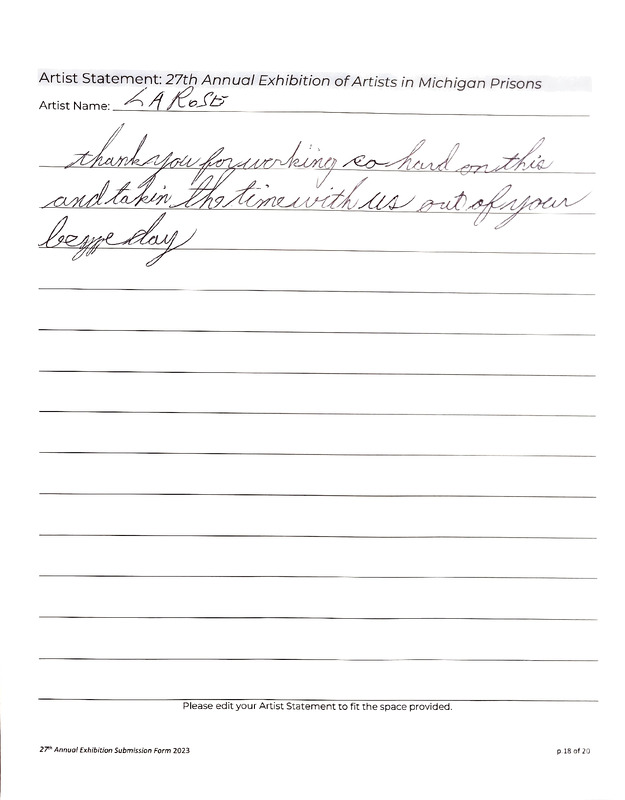 Artist Statement: 27th Annual Exhibition of Artists in Michigan Prisons
Artist Name: LA RoSE
thank you for working so hard on this
and takin the time with us out of your
day
Please edit your Artist Statement to fit the space provided.
27th Annual Exhibition Submission Form 2023
p.18 of 20